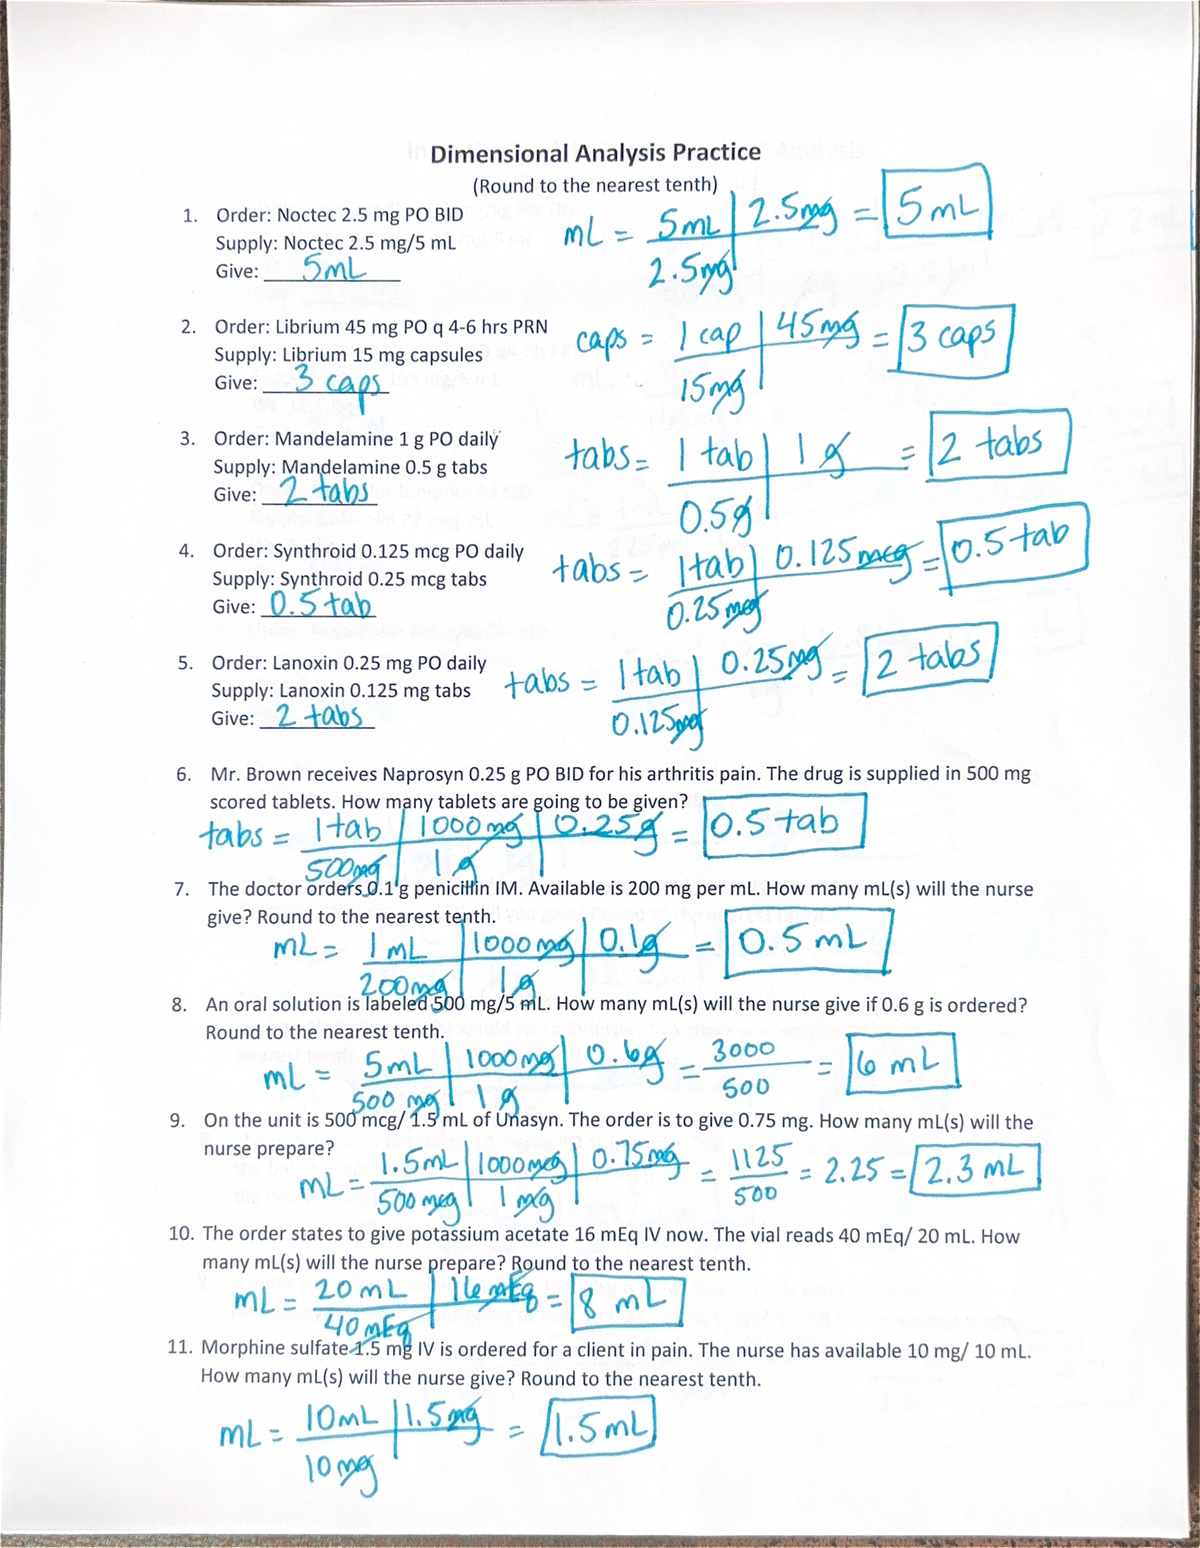 Dimensional Analysis Practice
(Round to the nearest tenth)
1. Order: Noctec 2.5 mg PO BID
Supply: Noctec 2.5 mg/5 mL
Give: 5mL
mL = 5mL | 2.5mg = 5 mL
2.5mg
2. Order: Librium 45 mg PO q 4-6 hrs PRN
Supply: Librium 15 mg capsules
Give: 3 caps
caps = 1 cap | 45mg = 3 caps
15mg
3. Order: Mandelamine 1 g PO daily
Supply: Mandelamine 0.5 g tabs
Give: 2 tabs
tabs = 1 tab | 1 g = 2 tabs
0.5g
4. Order: Synthroid 0.125 mcg PO daily
Supply: Synthroid 0.25 mcg tabs
Give: 0.5 tab
tabs = 1tab | 0.125mcg = 0.5 tab
0.25mcg
5. Order: Lanoxin 0.25 mg PO daily
Supply: Lanoxin 0.125 mg tabs
Give: 2 tabs
tabs = 1tab | 0.25mg = 2 tabs
0.125mg
6. Mr. Brown receives Naprosyn 0.25 g PO BID for his arthritis pain. The drug is supplied in 500 mg
scored tablets. How many tablets are going to be given?
tabs = 1tab | 1000mg | 0.25g = 0.5 tab
500mg | 1g
7. The doctor orders 0.1 g penicillin IM. Available is 200 mg per mL. How many mL(s) will the nurse
give? Round to the nearest tenth.
mL = 1mL | 1000mg | 0.1g = 0.5 mL
200mg | 1g
8. An oral solution is labeled 500 mg/5 mL. How many mL(s) will the nurse give if 0.6 g is ordered?
Round to the nearest tenth.
mL = 5mL | 1000mg | 0.6g = 3000 = 6 mL
500 mg | 1g 500
9. On the unit is 500 mcg/ 1.5 mL of Unasyn. The order is to give 0.75 mg. How many mL(s) will the
nurse prepare?
mL = 1.5mL | 1000mcg | 0.75mg = 1125 = 2.25 = 2.3 mL
500 mcg | 1 mg 500
10. The order states to give potassium acetate 16 mEq IV now. The vial reads 40 mEq/ 20 mL. How
many mL(s) will the nurse prepare? Round to the nearest tenth.
mL = 20 mL | 16 mEq = 8 mL
40 mEq
11. Morphine sulfate 1.5 mg IV is ordered for a client in pain. The nurse has available 10 mg/ 10 mL.
How many mL(s) will the nurse give? Round to the nearest tenth.
mL = 10mL | 1.5mg = 1.5mL
10mg